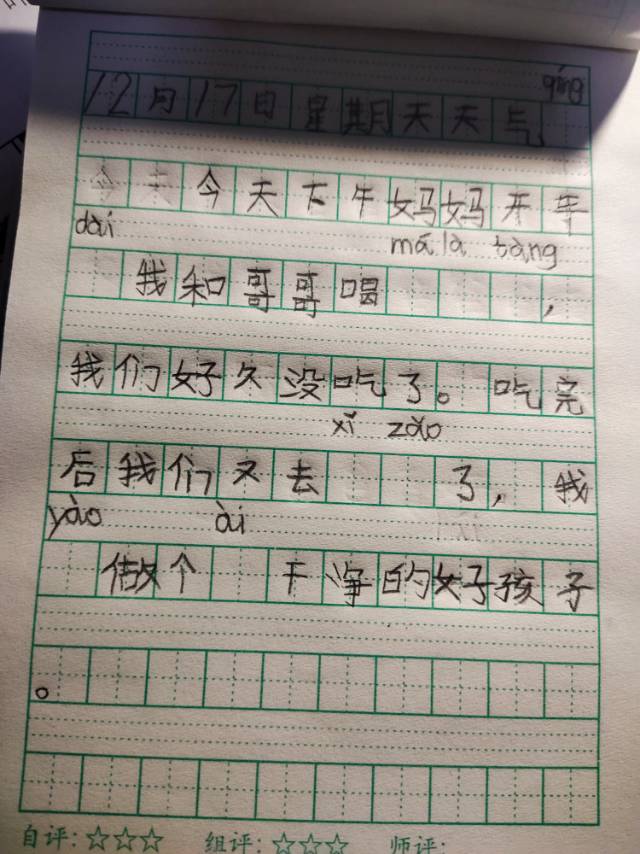 qíng
12月17日星期天天气
今天今天下午妈妈开车
dài má là tàng
我和哥哥喝，
我们好久没吃了。吃完
xǐ zǎo
后我们又去了，我
yào ài
做个干净的好孩子
。
自评：☆☆☆ 组评：☆☆☆ 师评：